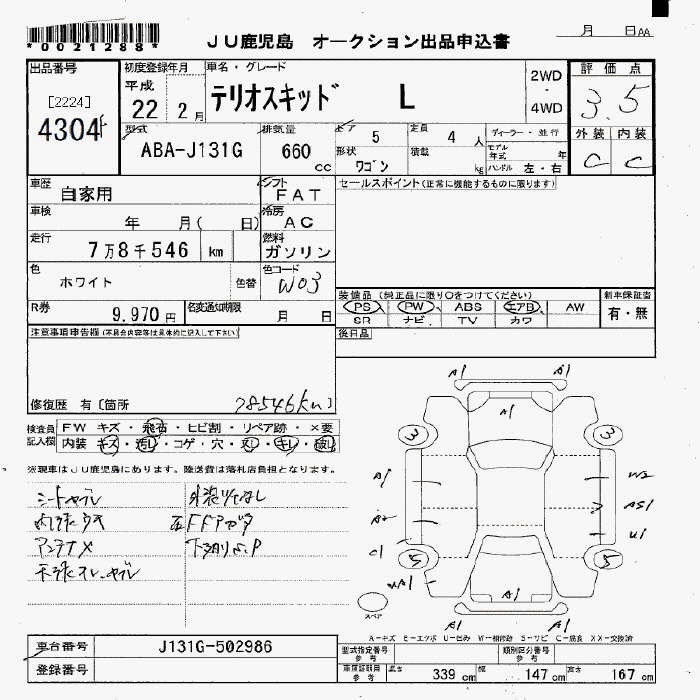 *0021288*
JU鹿児島 オークション出品申込書
月 日AA
出品番号
[2224]
4304
初度登録年月
平成
22 2月
車名・グレード
テリオスキッド L
2WD
・
4WD
評価点
3.5
外装 内装
C C
型式
ABA-J131G
排気量
660 cc
ドア 5
形状 ワゴン
定員 4 人
積載 kg
ディーラー・並行
モデル年式 年
ハンドル 左・右
車歴
自家用
シフト
FAT
セールスポイント(正常に機能するものに限ります)
車検
年 月( 日)
冷房
AC
走行
7万8千546 km
燃料
ガソリン
色
ホワイト
色替
色コード
W03
R券
9.970円
名変通知期限
月 日
装備品(純正品に限り〇をつけてください)
PS ・ PW ・ ABS エアB ・ AW
SR ナビ TV カワ
新車保証書
有・無
後日品
注意事項申告欄(不具合内容等は具体的に記入して下さい)
修復歴 有〔箇所
78546km
検査員記入欄
FW キズ・飛石・ヒビ割・リペア跡・×要
内装 キズ・汚レ・コゲ・穴・スレ・キレ・破レ
※現車はJU鹿児島にあります。陸送費は落札店負担となります。
シートヤブレ
アンテナX
A1
A1
A1
3
3
A1
W2
A2
U1
C1
5
5
A1
A1
A1
スペア
A－キズ E－エクボ U－凹み W－補修跡 S－サビ C－腐食 XX－交換済
車台番号
J131G-502986
登録番号
型式指定番号
参考
類別区分番号
参考
車庫証明用
参考
長さ 339cm
幅 147cm
高さ 167cm